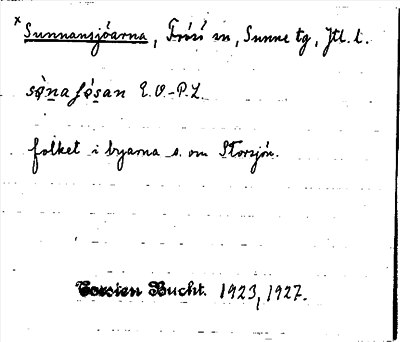 x Sunnansjöarna, Frösö sn, Sunne tg, Jtl. l.
sø̀nafǿsan E.O.-P.L.
folket i byarna s. om Storsjön.
Torsten Bucht. 1923, 1927.